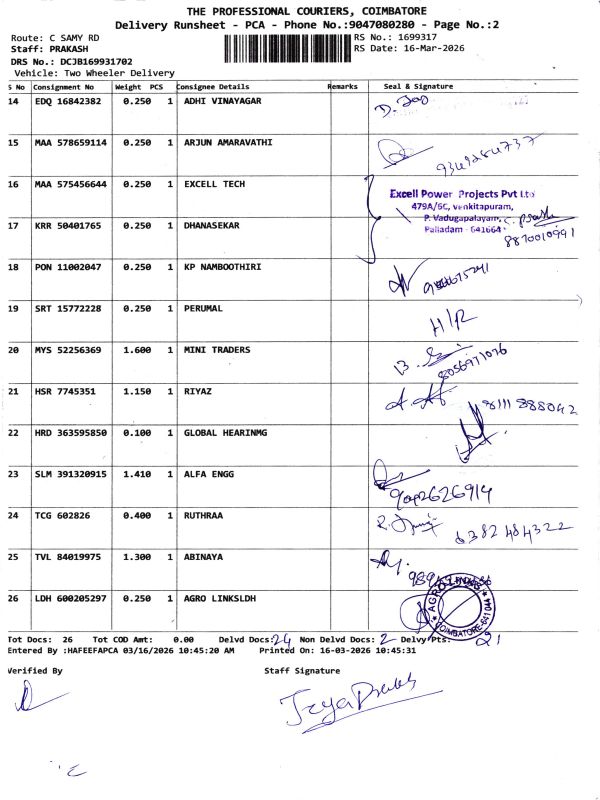 THE PROFESSIONAL COURIERS, COIMBATORE
Delivery Runsheet - PCA - Phone No.:9047080280 - Page No.:2
Route: C SAMY RD RS No.: 1699317
Staff: PRAKASH RS Date: 16-Mar-2026
DRS No.: DCJB169931702
Vehicle: Two Wheeler Delivery
S No Consignment No Weight PCS Consignee Details Remarks Seal & Signature
14 EDQ 16842382 0.250 1 ADHI VINAYAGAR
15 MAA 578659114 0.250 1 ARJUN AMARAVATHI
16 MAA 575456644 0.250 1 EXCELL TECH
Excell Power Projects Pvt Ltd
479A/5C, venkitapuram,
P. Vadugapalayam,
Palladam - 641664
17 KRR 50401765 0.250 1 DHANASEKAR
8870010991
18 PON 11002047 0.250 1 KP NAMBOOTHIRI
19 SRT 15772228 0.250 1 PERUMAL
20 MYS 52256369 1.600 1 MINI TRADERS
8056971076
21 HSR 7745351 1.150 1 RIYAZ
8111888042
22 HRD 363595850 0.100 1 GLOBAL HEARINMG
23 SLM 391320915 1.410 1 ALFA ENGG
24 TCG 602826 0.400 1 RUTHRAA
6382484322
25 TVL 84019975 1.300 1 ABINAYA
26 LDH 600205297 0.250 1 AGRO LINKSLDH
AGRO LINKS
COIMBATORE-641044
Tot Docs: 26 Tot COD Amt: 0.00 Delvd Docs: 24 Non Delvd Docs: 2 Delvy Pts: 21
Entered By :HAFEEFAPCA 03/16/2026 10:45:20 AM Printed On: 16-03-2026 10:45:31
Verified By Staff Signature